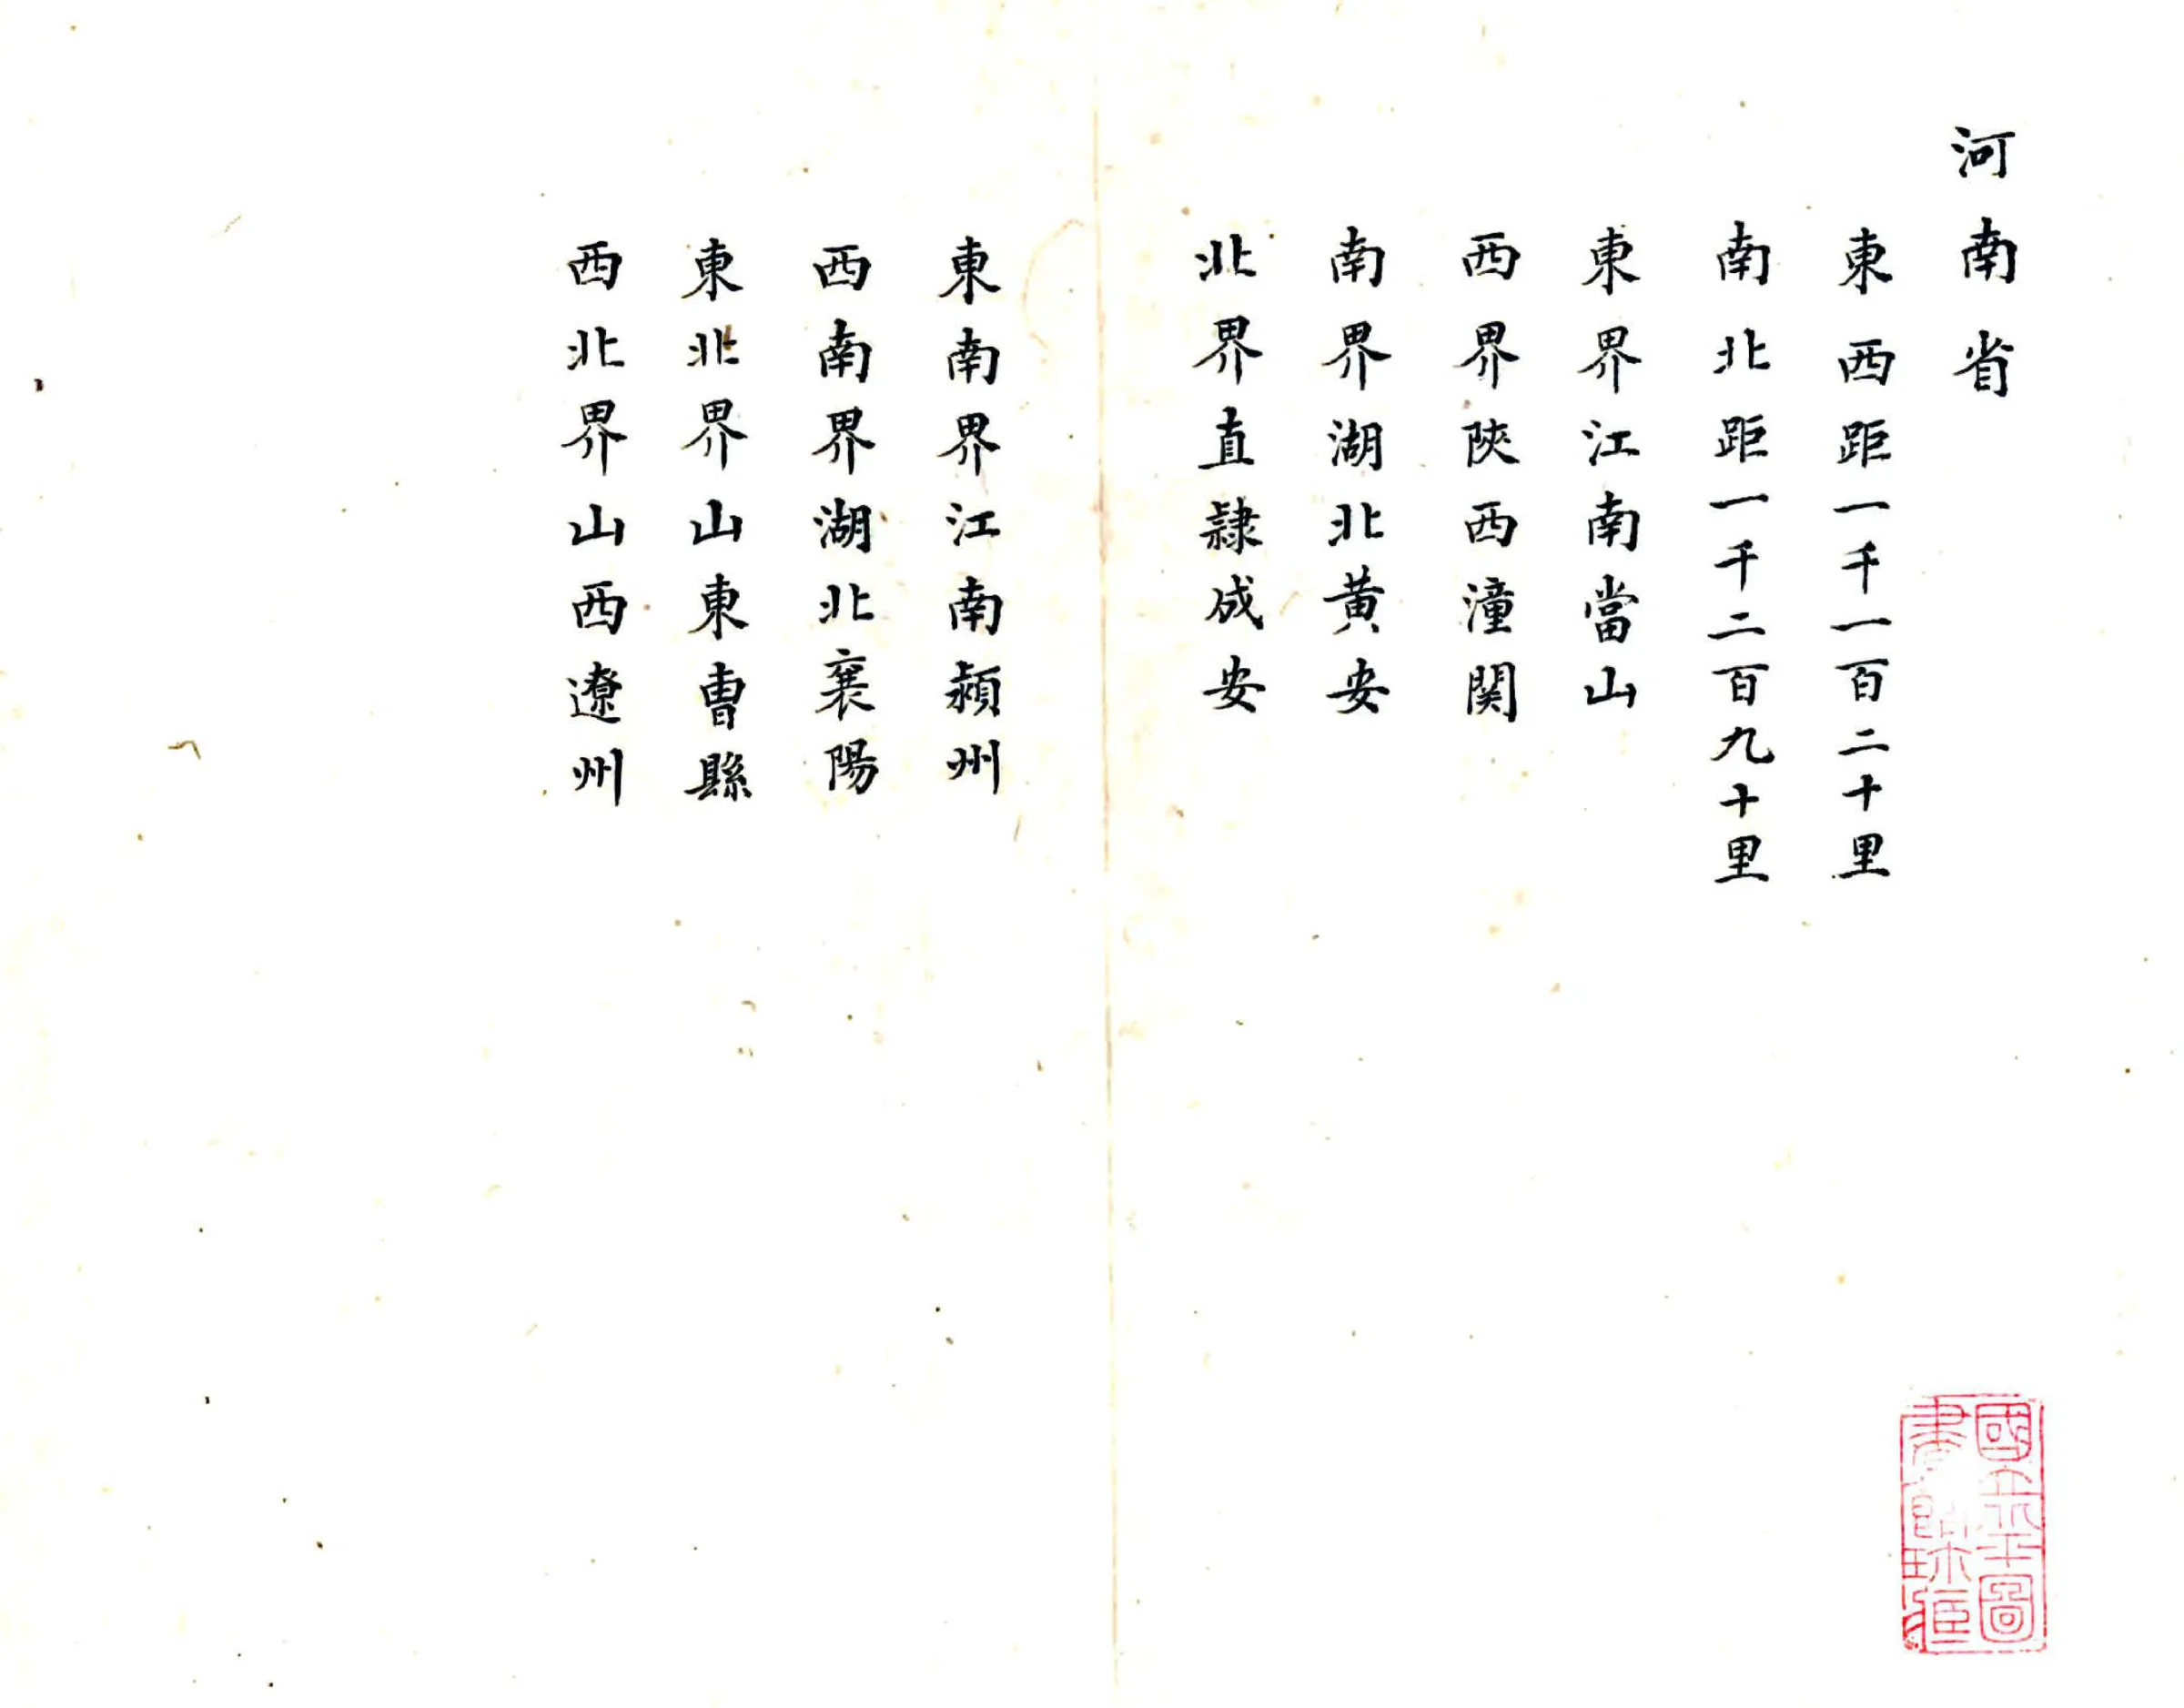 河南省
東西距一千一百二十里
南北距一千二百九十里
東界江南當山
西界陜西潼関
南界湖北黄安
北界直隷成安
東南界江南潁州
西南界湖北襄陽
東北界山東曹縣
西北界山西遼州
國立北平圖
書館珍藏